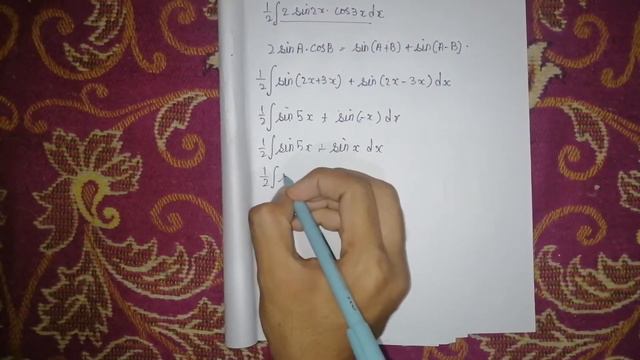 ½∫2 sin2x · cos3x dx
2 sinA · cosB = sin(A+B) + sin(A-B) ·
½∫sin(2x+3x) + sin(2x-3x) dx
½∫sin 5x + sin(-x) dx
½∫sin 5x - sin x dx
½∫